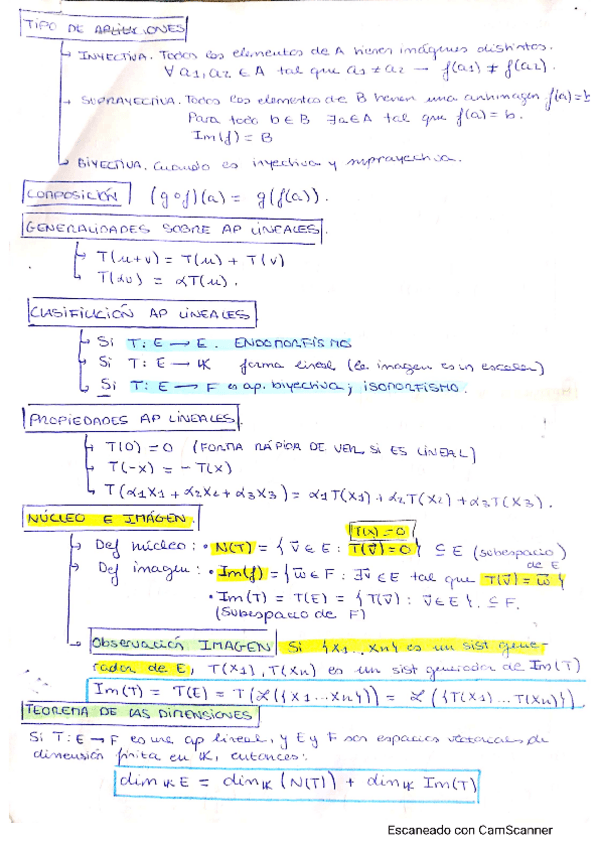 TIPO DE APLICACIONES
INYECTIVA. Todos los elementos de A tienen imágenes distintas.
∀ a1, a2 ∈ A tal que a1 ≠ a2 → f(a1) ≠ f(a2).
SUPRAYECTIVA. Todos los elementos de B tienen una antiimagen f(a)=b
Para todo b∈B ∃a∈A tal que f(a)=b.
Im(f) = B
BIYECTIVA. Cuando es inyectiva y suprayectiva.
COMPOSICIÓN (g∘f)(a) = g(f(a)).
GENERALIDADES SOBRE AP LINEALES.
T(u+v) = T(u) + T(v)
T(αu) = αT(u).
CLASIFICACIÓN AP LINEALES
Si T: E → E. ENDOMORFISMO
Si T: E → 𝕂 forma lineal (la imagen es un escalar)
Si T: E → F es ap. biyectiva; ISOMORFISMO.
PROPIEDADES AP LINEALES.
T(0) = 0 (FORMA RÁPIDA DE VER SI ES LINEAL)
T(-x) = -T(x)
T(α1x1 + α2x2 + α3x3) = α1T(x1) + α2T(x2) + α3T(x3).
NÚCLEO E IMÁGEN.
T(x) = 0
Def núcleo: • N(T) = { v⃗ ∈ E : T(v⃗) = 0⃗ } ⊆ E (subespacio de E)
Def imagen: • Im(f) = { w⃗ ∈ F : ∃v⃗ ∈ E tal que T(v⃗) = w⃗ }
• Im(T) = T(E) = { T(v⃗) : v⃗ ∈ E }. ⊆ F.
(Subespacio de F)
Observación IMAGEN Si {x1...xn} es un sist gene-
rador de E, T(x1), T(xn) es un sist generador de Im(T)
Im(T) = T(E) = T(ℒ({x1...xn})) = ℒ({T(x1)...T(xn)})
TEOREMA DE LAS DIMENSIONES
Si T: E → F es una ap lineal, y E y F son espacios vectoriales de
dimensión finita en 𝕂, entonces:
dim𝕂 E = dim𝕂 (N(T)) + dim𝕂 Im(T)
Escaneado con CamScanner